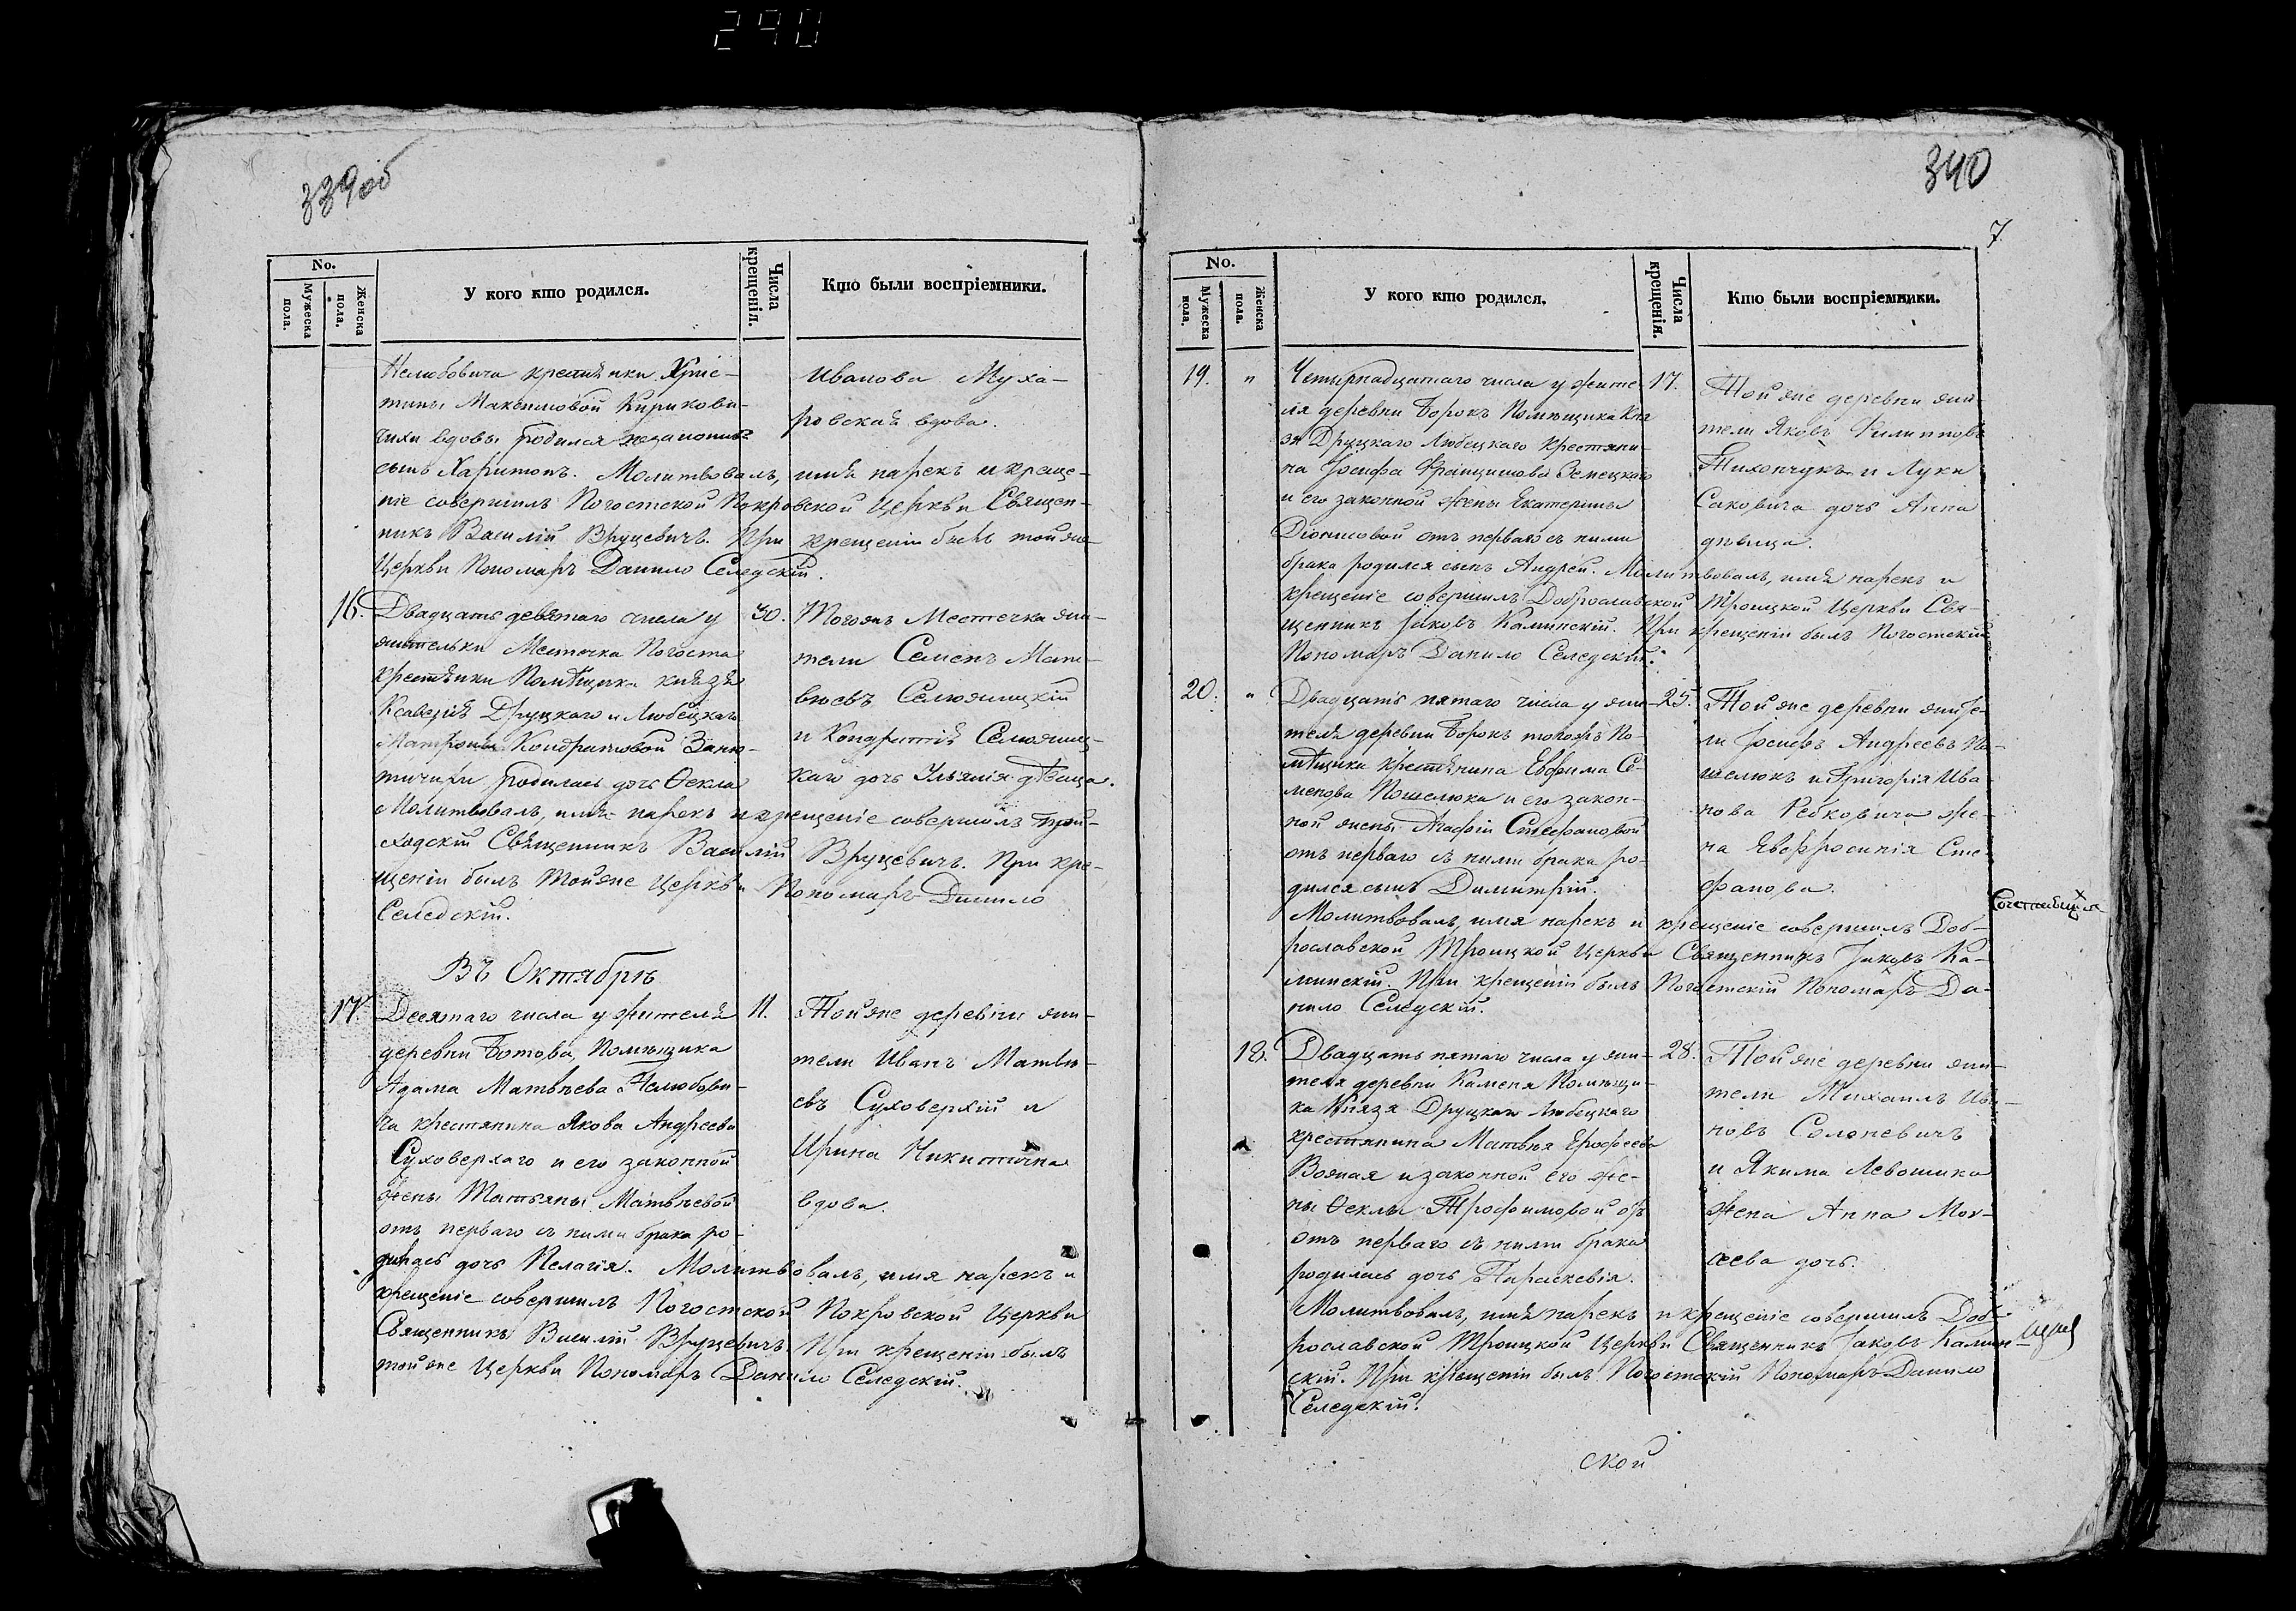 290
339об
No.
Мужеска пола.
Женска пола.
У кого кто родился.
Числа крещенія.
Кто были воспріемники.
Нелюбовича крестянки Хрис-
тины Максимовой Кирикови-
чихи вдовы родился
сынъ Харитонъ. Молитвовалъ, имя нарекъ и креще-
ніе совершилъ Погостской Покровской Церкви Священ-
никъ Василій Вруцевичъ. При крещеніи былъ той же
Церкви Пономарь Данило Селедскій.
Иванова Муха-
ровская вдова.
16. Двадцать девятаго числа у
жительки Местечка Погоста
крестянки Помѣщика князя
Ксаверія Друцкаго и Любецкаго
Матроны Кондратовой
родилась дочь Ѳекла
Молитвовалъ, имя нарекъ и крещеніе совершилъ При-
ходскій Священникъ Василій Вруцевичъ. При кре-
щеніи былъ той же Церкви Пономарь Данило
Селедскій.
30. Тогожъ Местечка жи-
тели Семенъ Мат-
вѣевъ Селюжицкій
и Кондратія Селюжиц-
каго дочь Ульянія дѣвица.
Въ Октябрѣ
17. Десятаго числа у жителя
деревни Ботова, Помѣщика
Адама Матвѣева Нелюбови-
ча крестянина Якова Андреева
Суховерхаго и его законной
жены Татьяны Матвѣевой
отъ перваго съ ними брака ро-
дилась дочь Пелагія. Молитвовалъ, имя нарекъ и
крещеніе совершилъ Погостской Покровской Церкви
Священникъ Василій Вруцевичъ. При крещеніи былъ
той же Церкви Пономарь Данило Селедскій.
11. Той же деревни жи-
тели Иванъ Матвѣ-
евъ Суховерхій и
Ирина Никитична
вдова.
340
7
No.
Мужеска пола.
Женска пола.
У кого кто родился.
Числа крещенія.
Кто были воспріемники.
19. " Четырнадцатаго числа у жите
ля деревни Борокъ Помѣщика Кня
зя Друцкаго Любецкаго Крестяни-
на Іосифа Францишова Земецкаго
и его законной жены Екатерины
Діонисовой отъ перваго съ ними
брака родился сынъ Андрей. Молитвовалъ, имя нарекъ и
крещеніе совершилъ Доброславской Троицкой Церкви Свя-
щенникъ Іаковъ Каминскій. При крещеніи былъ Погостскій
Пономарь Данило Селедскій.
17. Той же деревни жи-
тели Яковъ Филиповъ
Тихончукъ и Луки
Саковича дочь Анна
дѣвица.
20. " Двадцать пятаго числа у жи-
теля деревни Борокъ тогожъ По-
мѣщика крестянина Евфима Се-
менова Пошелюка и его закон-
ной жены Агафіи Стефановой
отъ перваго съ ними брака ро-
дился сынъ Димитрій.
Молитвовалъ, имя нарекъ и крещеніе совершилъ Доб-
рославской Троицкой Церкви Священникъ Іаковъ Ка-
минскій. При крещеніи былъ Погостскій Пономарь Да-
нило Селедскій.
25. Той же деревни жите-
ли Іосифъ Андреевъ По-
шелюкъ и Григорія Ива-
нова Ребковича же-
на Евфросинія Сте-
фанова.
18. Двадцать пятаго числа у жи-
теля деревни Каменя Помѣщи-
ка Князя Друцкаго Любецкаго
крестянина Матвѣя Ерофеева
Возная и законной его же-
ны Ѳеклы Трофимовой
отъ перваго съ ними брака
родилась дочь Параскевія.
Молитвовалъ, имя нарекъ и крещеніе совершилъ Доб-
рославской Троицкой Церкви Священникъ Іаковъ Камин-
скій. При крещеніи былъ Погостскій Пономарь Данило
Селедскій.
28. Той же деревни жи-
тели Михаилъ Ива-
новъ Солоневичъ
и Якима Левошика
жена Анна Мок-
сеева дочь.
ской